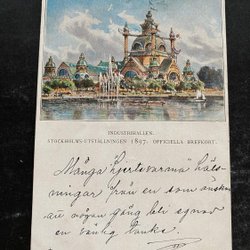 INDUSTRIHALLEN.
STOCKHOLMS-UTSTÄLLNINGEN 1897. OFFICIELLA BREFKORT.
Många hjertevarma häls-
ningar från en som önskar
att någon gång blir egnad
en vänlig tanke.